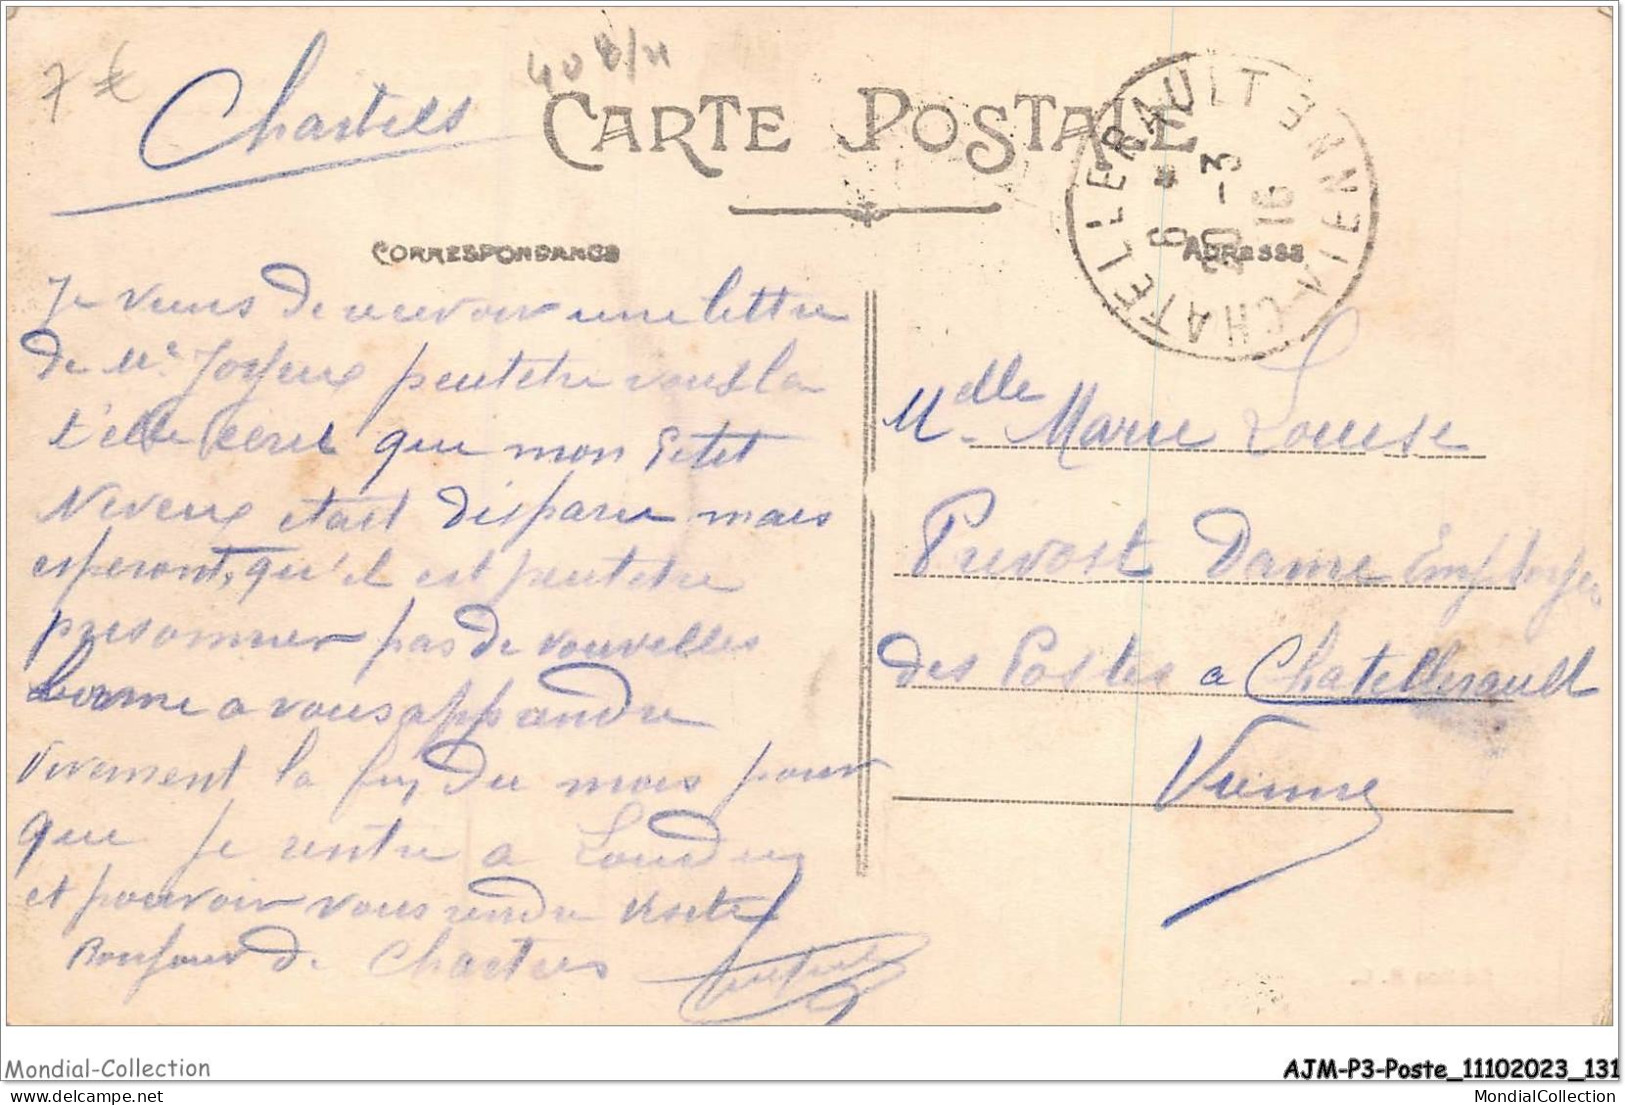 7 €
Chartres
CARTE POSTALE
CHATELLERAULT VIENNE
6 *
20 -3
16
CORRESPONDANCE
ADRESSE
Je viens de recevoir une lettre
de Me Joyeux peutetre vous la
t'elle ecrit que mon Petit
Neveux etait disparu mais
esperont, qu'il est peutetre
prisonnier pas de nouvelles
a vous appandre
Vivement la fin du mois pour
que je rentre a Loudun
et pouvoir vous rendre visite
Bonjour de Chartres
Melle Marie Louise
Prevost Dame Employer
des Postes a Chatellerault
Vienne
Mondial-Collection
AJM-P3-Poste_11102023_131
MondialCollection
MondialCollection